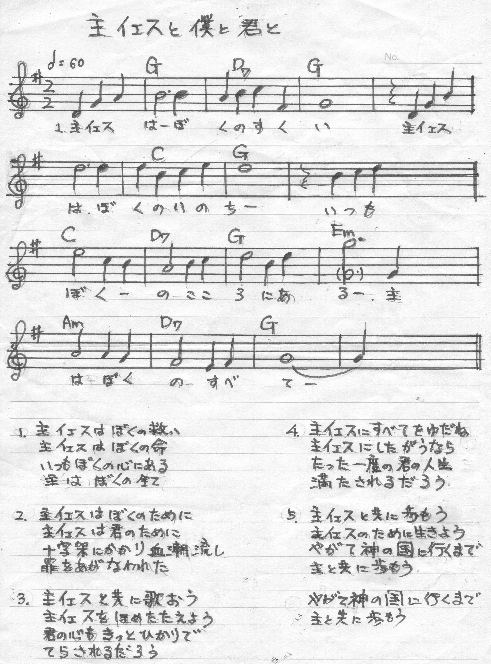 主イエスと僕と君と
No.
♩=60
G D7 G
2 2
1.主イエス はーぼ くのすく い 主イエス
C G
は ぼ く の い の ち ー い つ も
C D7 G Em
ぼ く ー の こ こ ろ に あ る ー 主
Am D7 G
は ー ぼ く の す べ て ー
1. 主イエスはぼくの救い
主イエスはぼくの命
いつもぼくの心にある
主は ぼくの全て
2. 主イエスはぼくのために
主イエスは君のために
十字架にかかり血潮流し
罪をあがなわれた
3. 主イエスと共に歌おう
主イエスをほめたたえよう
君の心も きっとひかりで
てらされるだろう
4. 主イエスにすべてをゆだね
主イエスにしたがうなら
たった一度の君の人生
満たされるだろう
5. 主イエスと共に歩もう
主イエスのために生きよう
やがて神の国に行くまで
主と共に歩もう
やがて神の国に行くまで
主と共に歩もう